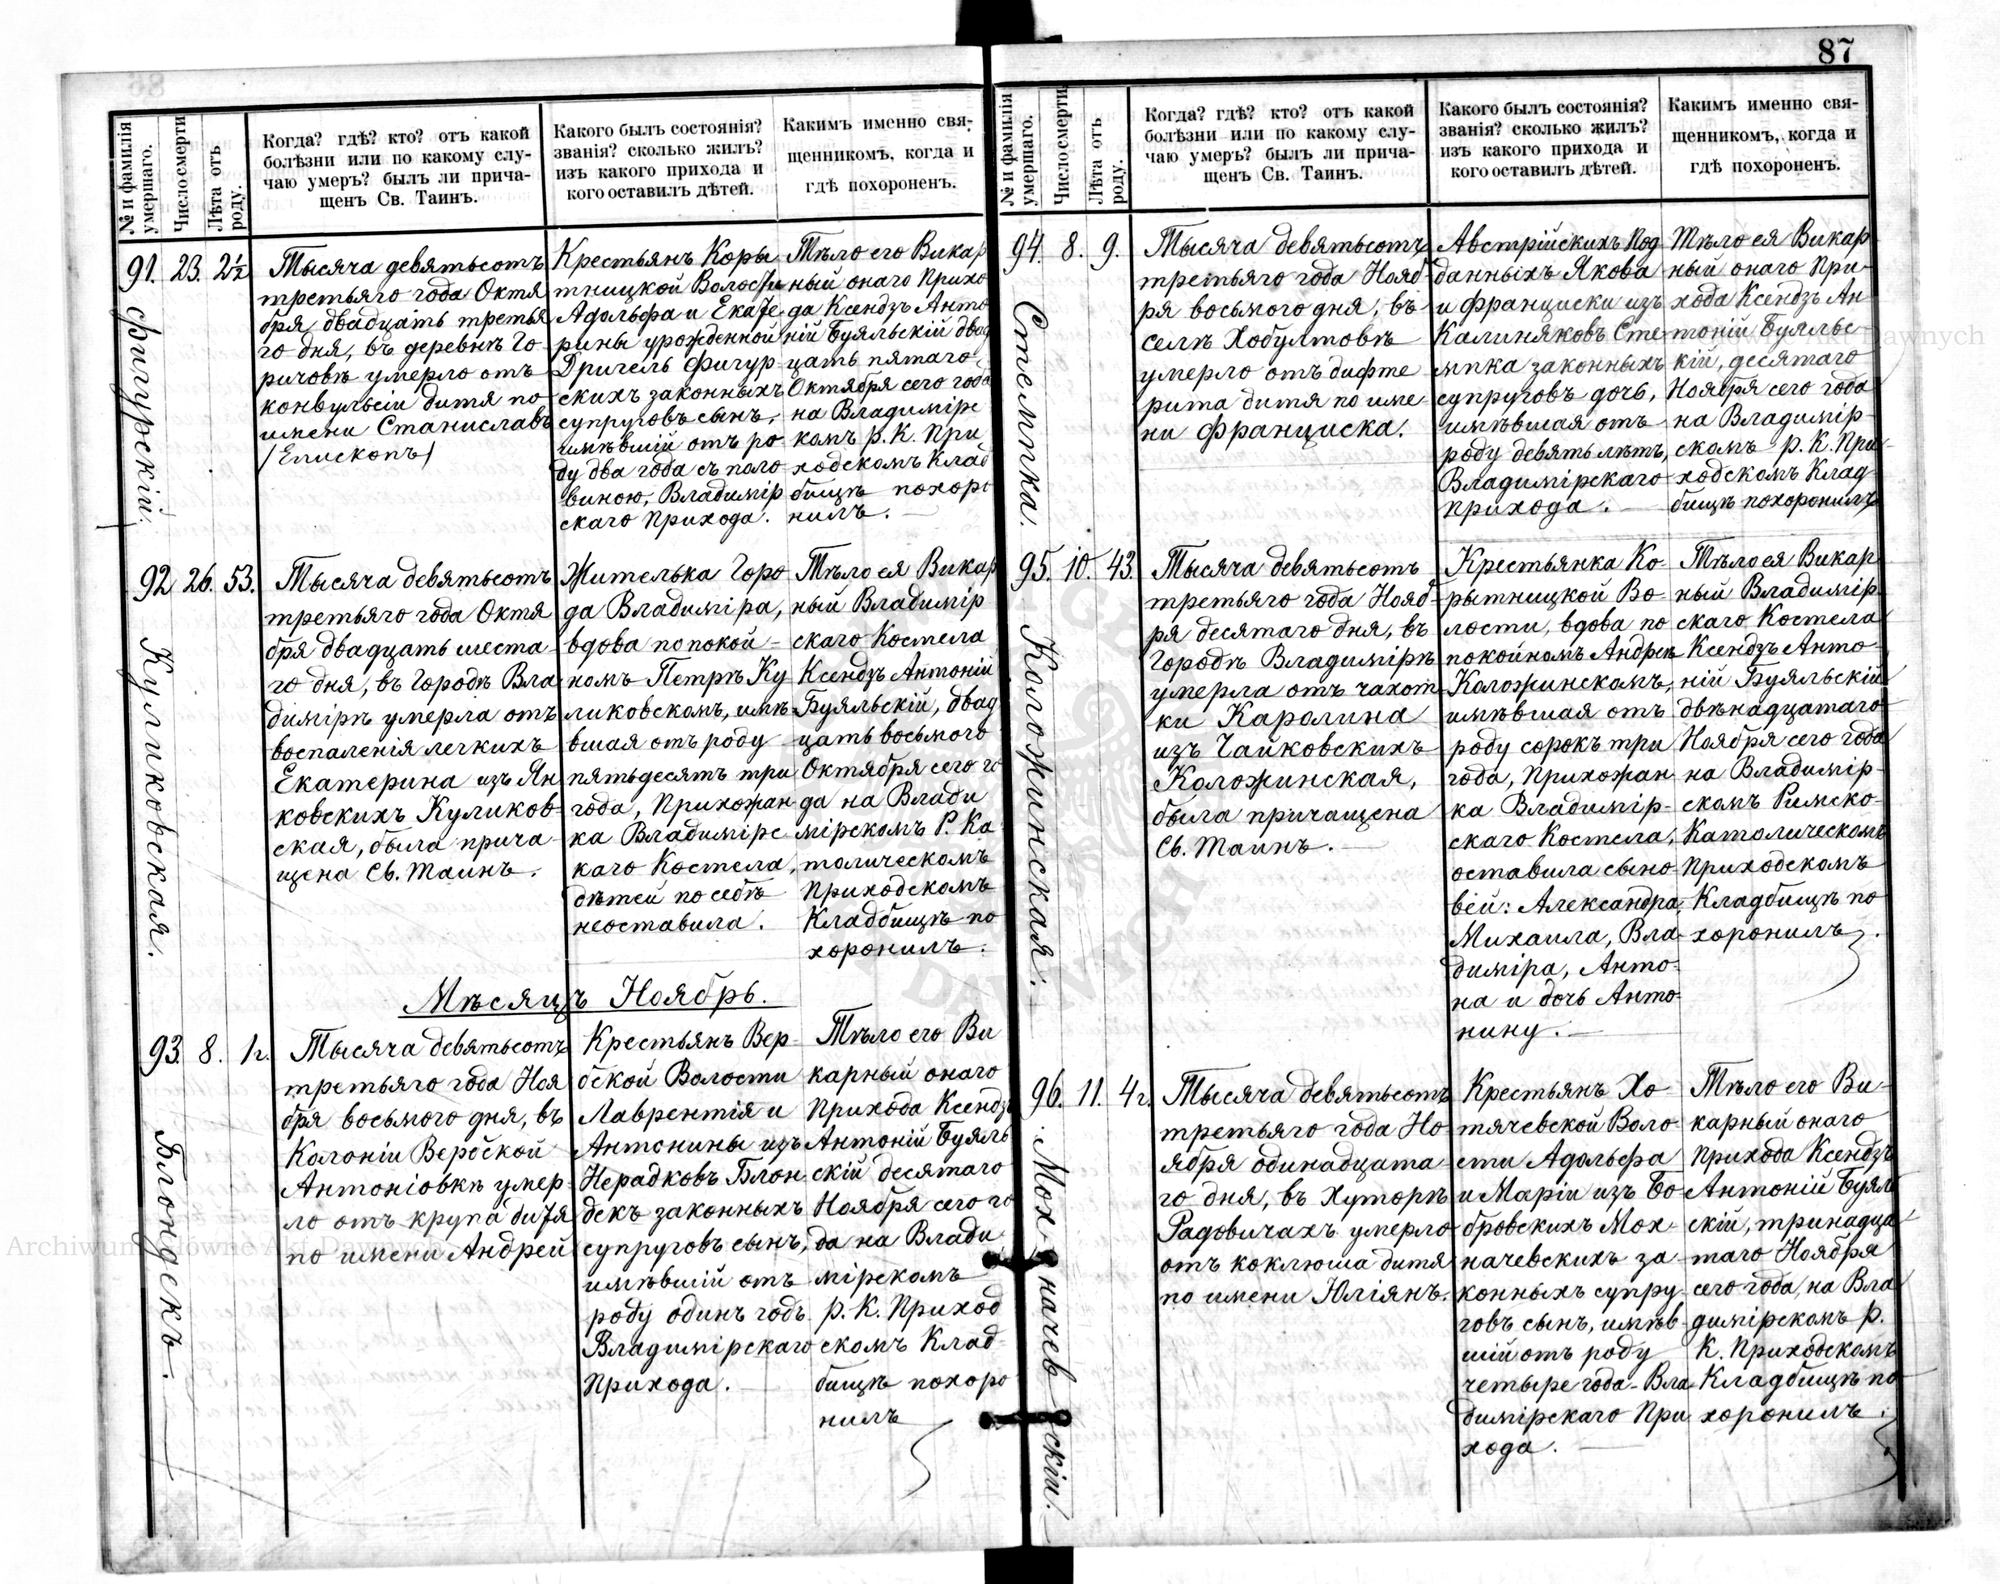 87
№ и фамилія умершаго.
Число смерти
Лѣта отъ роду.
Когда? гдѣ? кто? отъ какой
болѣзни или по какому слу-
чаю умеръ? былъ ли прича-
щенъ Св. Таинъ.
Какого былъ состоянія?
званія? сколько жилъ?
изъ какого прихода и
кого оставилъ дѣтей.
Какимъ именно свя-
щенникомъ, когда и
гдѣ похороненъ.
91.
Фигурскій.
23.
2½
Тысяча девятьсотъ
третьяго года Октя
бря двадцать третья
го дня, въ деревнѣ Го
ричовѣ умерло отъ
конвульсіи дитя по
имени Станиславъ
/Епископъ/
Крестьянъ Коры
тницкой Волости
Адольфа и Екате
рины урожденной
Дригель Фигур
скихъ законныхъ
супруговъ сынъ,
имѣвшій отъ ро
ду два года съ поло
виною, Владимір
скаго Прихода.
Тѣло его Викар
ный онаго Прихо
да Ксендзъ Анто
ній Буяльскій двад
цать пятаго
Октября сего года
на Владимірс
комъ р. К. При
ходскомъ Клад
бищѣ похоро
нилъ.
92
Куликовская.
26.
53.
Тысяча девятьсотъ
третьяго года Октя
бря двадцать шеста
го дня, въ Городѣ Вла
димірѣ умерла отъ
воспаленія легкихъ
Екатерина изъ Ян
ковскихъ Куликов
ская, была прича-
щена Св. Таинъ.
Жителька Горо
да Владиміра,
вдова по покой-
номъ Петрѣ Ку
ликовскомъ, имѣ
вшая отъ роду
пятьдесятъ три
года, Прихожан
ка Владимірс
каго Костела,
дѣтей по себѣ
неоставила.
Тѣло ея Викар
ный Владимір
скаго Костела
Ксендзъ Антоній
Буяльскій, двад
цать восьмого
Октября сего го
да на Влади
мірскомъ Р. Ка
толическомъ
Приходскомъ
Кладбищѣ по
хоронилъ.
Мѣсяцъ Ноябрь.
93.
Блондекъ.
8.
1 г.
Тысяча девятьсотъ
третьяго года Ноя
бря восьмого дня, въ
Колоніи Вербской
Антоніовкѣ умер
ло отъ крупа дитя
по имени Андрей
Крестьянъ Вер-
бской Волости
Лаврентія и
Антонины изъ
Нерадковъ Блон
декъ законныхъ
супруговъ сынъ,
имѣвшій отъ
роду одинъ годъ
Владимірскаго
Прихода.
Тѣло его Ви
карный онаго
Прихода Ксендзъ
Антоній Буяль
скій десятаго
Ноября сего го
да на Влади
мірскомъ
р. К. Приход
скомъ Клад
бищѣ похоро
нилъ
№ и фамилія умершаго.
Число смерти
Лѣта отъ роду.
Когда? гдѣ? кто? отъ какой
болѣзни или по какому слу-
чаю умеръ? былъ ли прича-
щенъ Св. Таинъ.
Какого былъ состоянія?
званія? сколько жилъ?
изъ какого прихода и
кого оставилъ дѣтей.
Какимъ именно свя-
щенникомъ, когда и
гдѣ похороненъ.
94.
Стемпка.
8.
9.
Тысяча девятьсотъ
третьяго года Нояб
ря восьмого дня, въ
селѣ Хобултовѣ
умерло отъ дифте
рита дитя по име
ни Франциска.
Австрійскихъ Под
данныхъ Якова
и Франциски изъ
Калиняковъ Сте
мпка законныхъ
супруговъ дочь,
имѣвшая отъ
роду девять лѣтъ,
Владимірскаго
прихода.
Тѣло ея Викар
ный онаго При-
хода Ксендзъ Ан
тоній Буяльс-
кій, десятаго
Ноября сего года
на Владимір-
скомъ р. К. При
ходскомъ Клад
бищѣ похоронилъ
95.
Коложинская.
10.
43.
Тысяча девятьсотъ
третьяго года Нояб
ря десятаго дня, въ
Городѣ Владимірѣ
умерла отъ чахот
ки Каролина
изъ Чайковскихъ
Коложинская,
была причащена
Св. Таинъ.
Крестьянка Ко-
рытницкой Во-
лости, вдова по
покойномъ Андреѣ
Коложинскомъ,
имѣвшая отъ
роду сорокъ три
года, Прихожан
ка Владимір-
скаго Костела,
оставила сыно-
вей: Александра,
Михаила, Вла-
диміра, Анто-
на и дочь Анто-
нину.
Тѣло ея Викар
ный Владимір
скаго Костела
Ксендзъ Анто-
ній Буяльскій
двѣнадцатаго
Ноября сего года
на Владимір-
скомъ Римско-
Католическомъ
Приходскомъ
Кладбищѣ по
хоронилъ.
96.
Мохначевскій.
11.
4 г.
Тысяча девятьсотъ
третьяго года Но
ября одинадцата-
го дня, въ Хуторѣ
Радовичахъ умерло
отъ коклюша дитя
по имени Юліянъ.
Крестьянъ Хо-
тячевской Воло-
сти Адольфа
и Маріи изъ Бо
бровскихъ Мох-
начевскихъ за-
конныхъ супру-
говъ сынъ, имѣв
шій отъ роду
четыре года - Вла
димірскаго При
хода.
Тѣло его Ви-
карный онаго
Прихода Ксендзъ
Антоній Буяль
скій, тринадца
таго Ноября
сего года, на Вла
димірскомъ р.
К. Приходскомъ
Кладбищѣ по
хоронилъ.